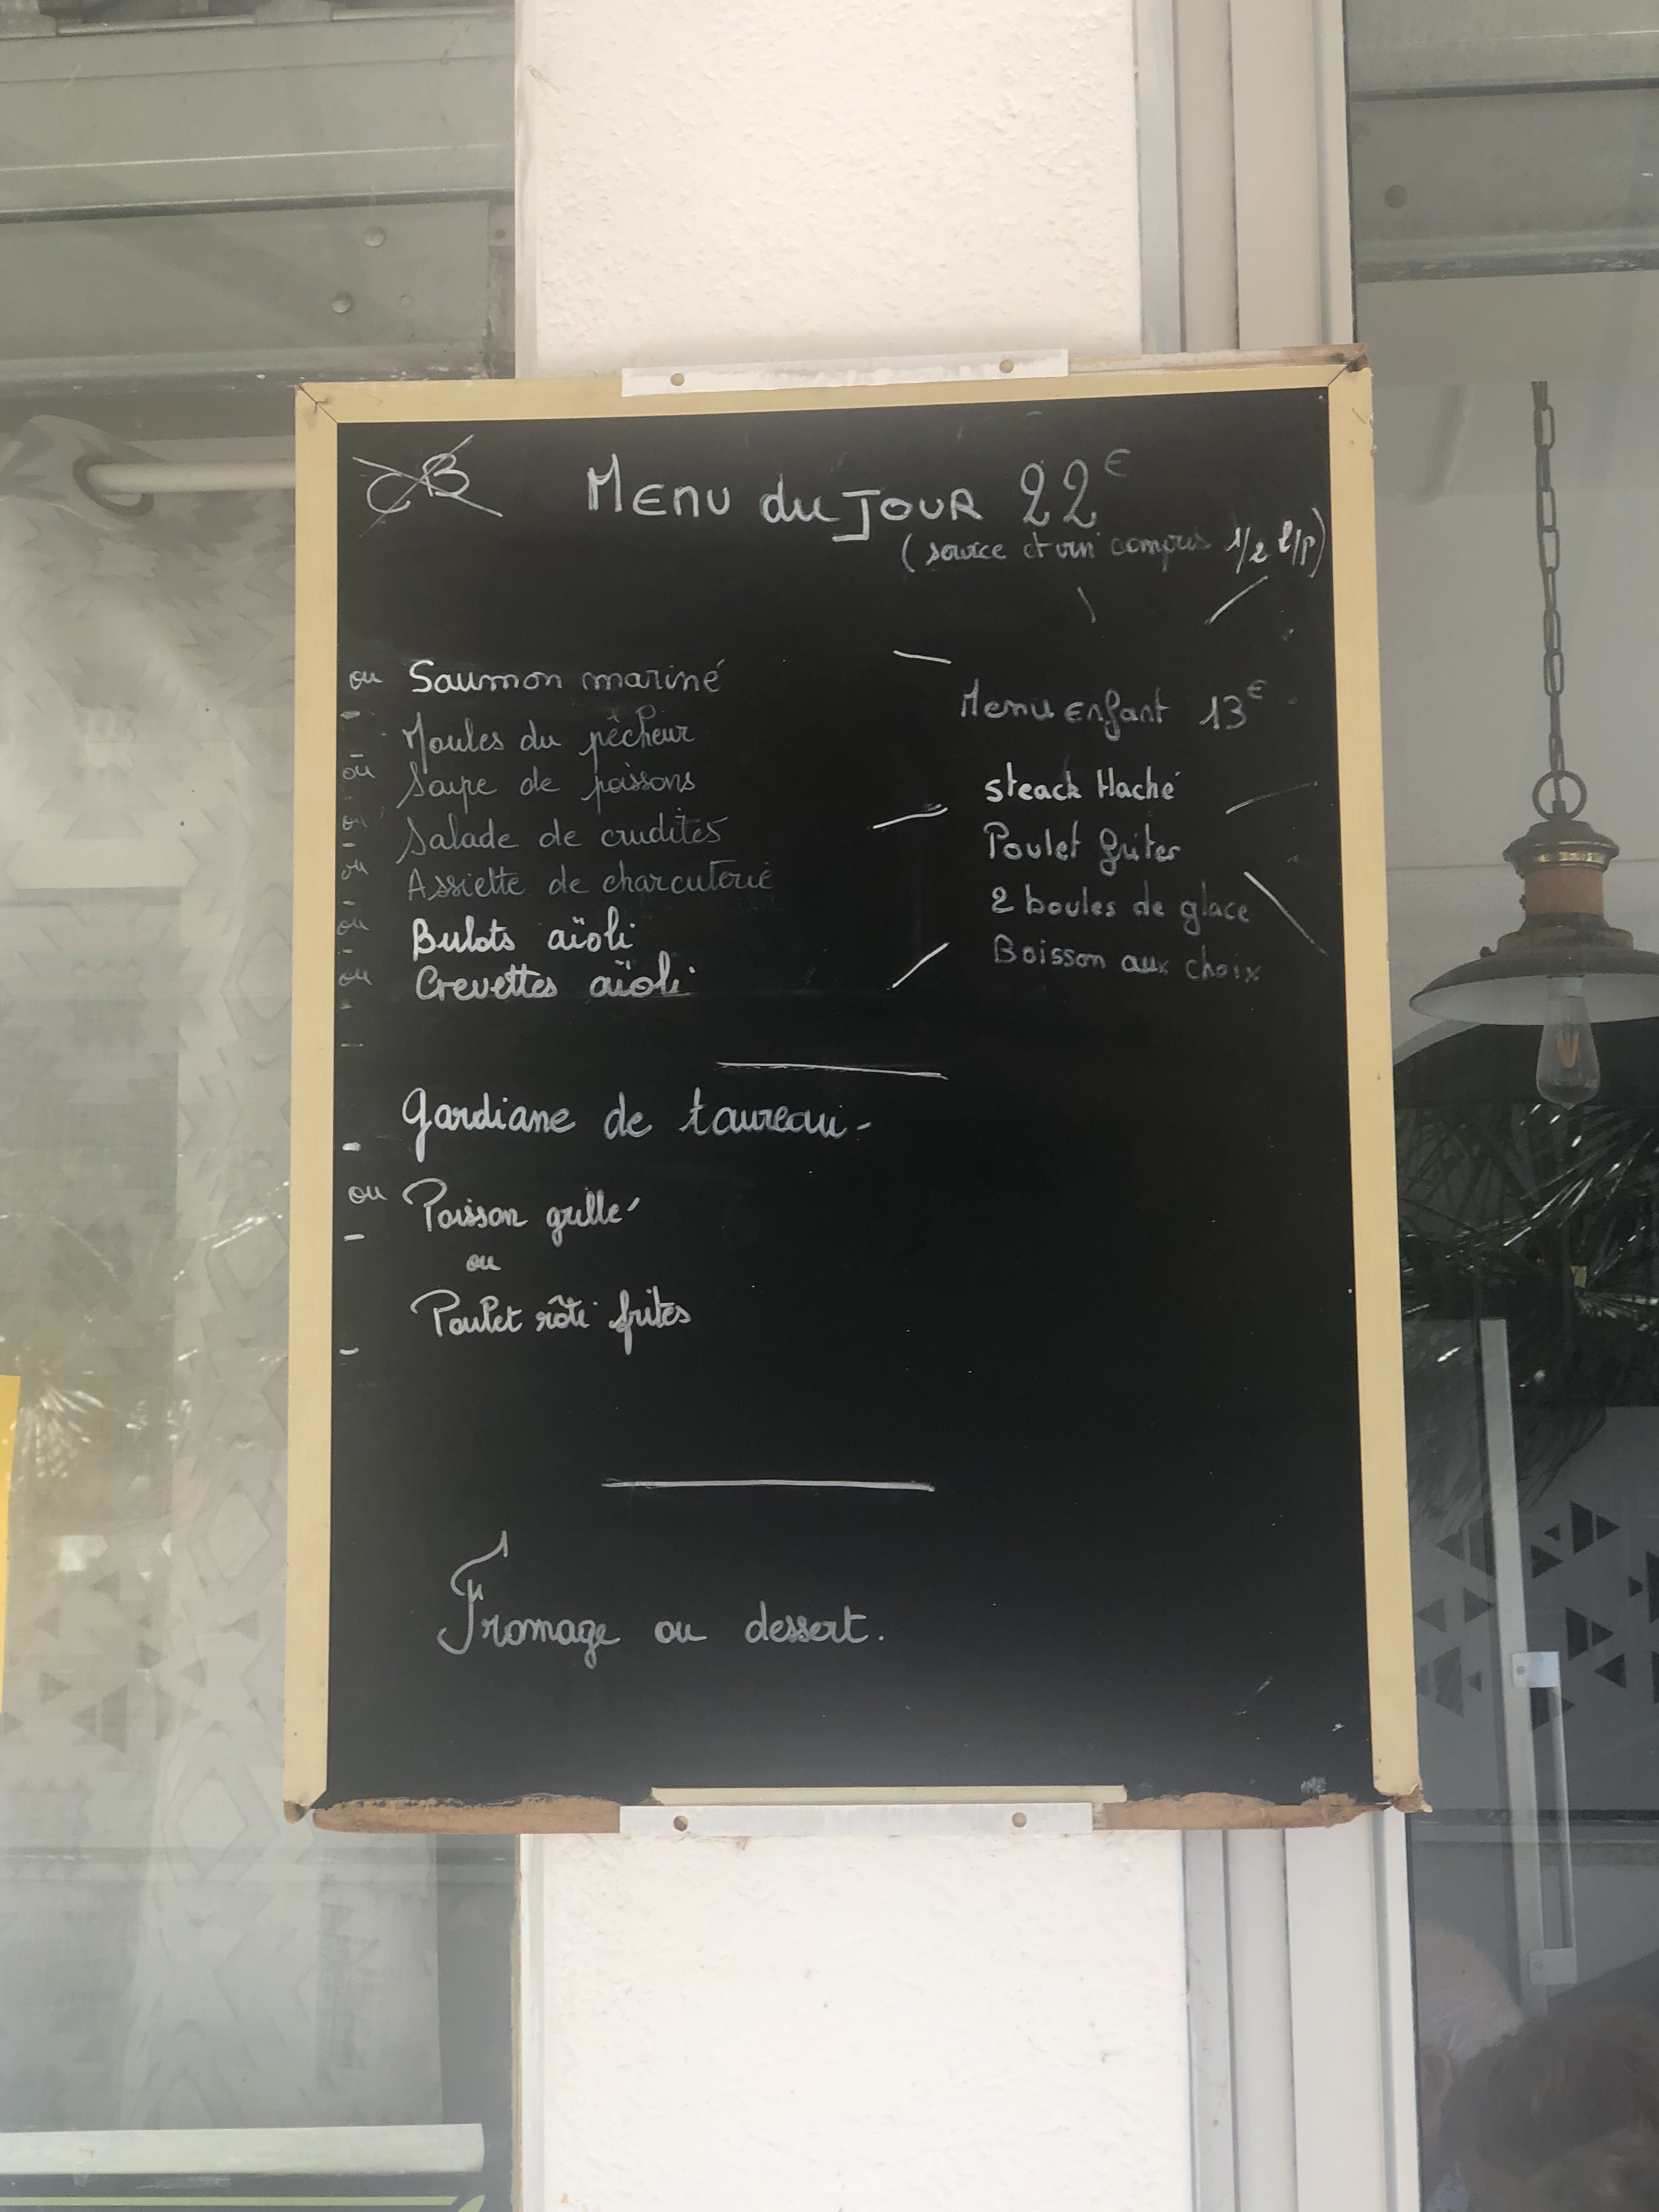 CB
MENU du JOUR 22€
(service et vin compris 1/2 l/p)
ou Saumon mariné
Moules du pêcheur
ou Soupe de poissons
ou Salade de crudités
ou Assiette de charcuterie
ou Bulots aïoli
ou Crevettes aïoli
Menu enfant 13€
steack Haché
Poulet frites
2 boules de glace
Boisson aux choix
gardiane de taureau -
ou Poisson grillé
ou
Poulet rôti frites
Fromage ou dessert.